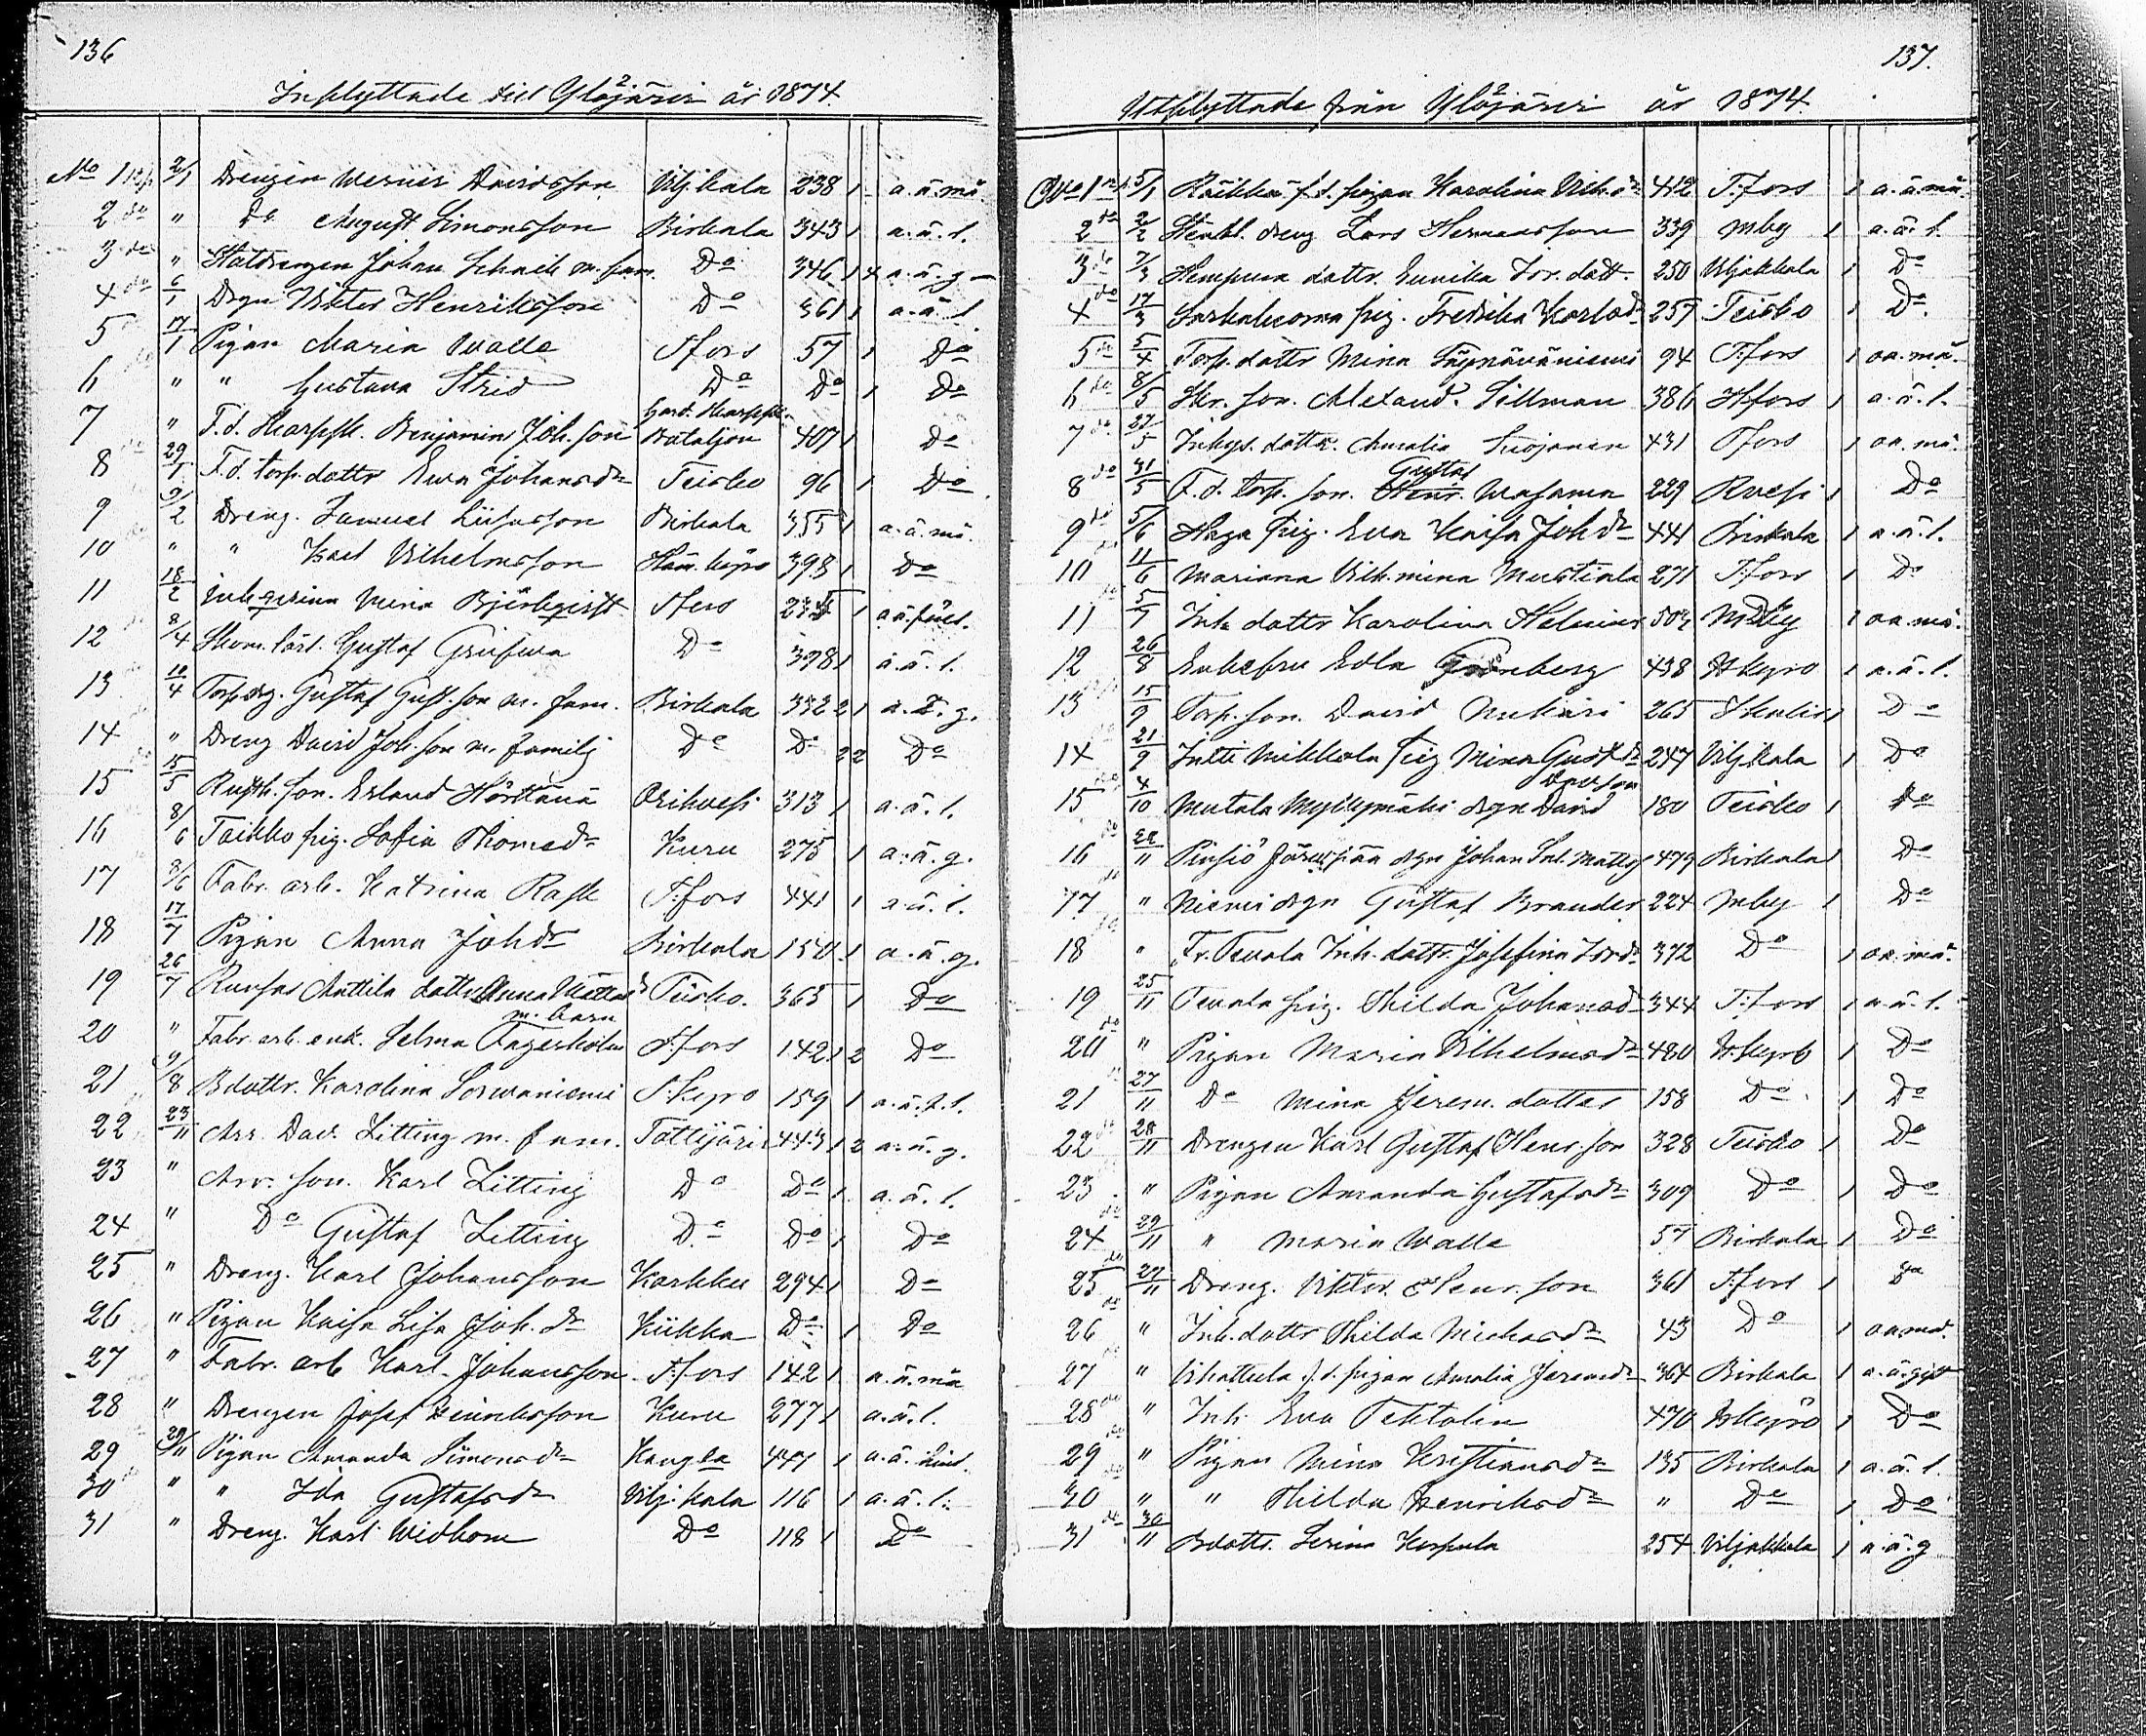 136
Inflyttade till Ylöjärvi år 1874.
No 1 2/1 Drengen Werner Davidsson Vilj.kala 238 1 a.ä.må.
2 do " Do August Simonsson Birkala 343 1 a.ä.l.
3 do " Statdrengen Johan Schneik m. fam. Do 346 1 4 a.ä.g
4 do 6/1 Drgn Viktor Henriksson Do 361 1 a.ä.l
5 17/1 Pigan Maria Walle T:fors 57 1 Do
6 " " Gustava Strid Do Do 1 Do
7 " F.d. Skarpsk. Benjamin Joh.son Gard. Skarpsk. Bataljon 407 1 Do
8 29/1 F.d. torp.dottr Eva Johansdr Teisko 96 1 Do
9 9/2 Dreng. Samuel Birkala 355 1 a.ä.må.
10 " " Karl Vilhelmsson Häm.kyro 398 1 Do
11 18/2 Mina Björkqvist T:fors 235 1 a.ä.
12 8/4 Skom.lärl. Gustaf Do 398 1 a.ä.l.
13 10/4 Torp.drg. Gustaf Gust.son m. fam. Birkala 332 2 1 a.ä.g.
14 " Dreng David Joh.son m. familj Do Do 2 2 Do
15 15/5 Rusth.son. Erland Hörttänä Orihvesi 313 1 a.ä.l.
16 8/6 Taikko pig. Sofia Thomasdr Kuru 275 1 a.ä.g.
17 8/6 Fabr. arb. Katrina Rask T:fors 441 1 a.ä.l.
18 17/7 Pigan Anna Johdr Birkala 150 1 a.ä.g.
19 26/7 Anttila dottr Anna Mattsd Teisko. 365 1 Do
20 " Fabr. arb. enk. Selma Fagerholm m. barn T:fors 142 1 2 Do
21 9/8 Bdottr. Karolina Sorvaniemi T.kyro 159 1 a.ä.l.
22 23/11 Arr. Dav. Litting m. fam. Tottijärvi 443 1 2 a.ä.g.
23 " Arr. son. Karl Litting Do Do 1 a.ä.l.
24 " Do Gustaf Litting Do Do 1 Do
25 " Dreng. Karl Johansson Karkku 294 1 Do
26 " Pigan Kaisa Lisa Joh.dr Kiikka Do 1 Do
27 " Fabr. arb Karl Johansson T:fors 142 1 a.ä.må
28 " Drengen Josef Henriksson Kuru 277 1 a.ä.l.
29 29/11 Pigan Amanda Simonsdr Kangsla 447 1 a.ä.
30 " " Ida Gustafsdr Vilj.kala 116 1 a.ä.l.
31 " Dreng. Karl Widbom Do 118 1 Do
137.
Utflyttade från Ylöjärvi år 1874.
No 1 5/1 Räikkä f.d. pigan Karolina Vilh.dr 412 T:fors 1 a.ä.må.
2 do 2/2 dreng Lars Hermansson 339 Mby 1 a.ä.l.
3 do 7/3 dottr. Eunika dott. 250 Viljakkala 1 Do
4 do 17/3 pig. Fredrika Karlsdr 257 Teisko 1 Do.
5 do 5/4 Torp.dottr Mina Säynäväniemi 94 T:fors 1 oa.må.
6 do 8/5 Skr. son. Alexand. Sillman 386 H:fors 1 a.ä.l.
7 do 27/5 Inhys.dottr. Amalia Suojanen 431 T:fors 1 oa.må.
8 do 31/5 F.d. torp. son. Gustaf Henr. Wasama 229 Ruovesi 1 Do
9 do 5/6 Haga pig. Eva Kaisa Johdr 441 Birkala 1 a.ä.l.
10 11/6 Mariana Vilh.mina Mustiala 271 T:fors 1 Do
11 5/7 Inh. dottr Karolina Helenius 503 Mby 1 oa.må.
12 26/8 Enkefru Edla Grönberg 438 H.kyro 1 a.ä.l.
13 15/9 Torp.son. David Mukari 265 Ikalis 1 Do
14 21/9 Intti Mikkola pig Mina Gustdr 247 Vilj.kala 1 Do
15 4/10 Mutala Myllymäki drgn David Dav.son 180 Teisko 1 Do
16 22/11 Pinsiö Järvenpää drgn Johan 479 Birkala 1 Do
17 " Niemi drgn Gustaf Brander 224 Mby 1 Do
18 " Fr. Tevala Inh. dottr. Josefina 372 Do 1 oa.må.
19 25/11 Tevala pig. Hilda Johansd 344 T:fors 1 a.ä.l.
20 " Pigan Maria Vilhelmsdr 480 H.kyrö 1 Do
21 27/11 Do Mina Jerem. dotter 158 Do 1 Do
22 28/11 Drengen Karl Gustaf Henr.son 328 Teisko 1 Do
23 " Pigan Amanda Gustafsdr 309 Do 1 Do
24 29/11 " Maria Walle 57 Birkala 1 Do
25 29/11 Dreng. Viktor Henr.son 361 T:fors 1 Do
26 " Inh. dottr Hilda Michaelsdr 43 Do 1 oa.må.
27 " f.d. pigan Amalia Jeremdr 364 Birkala 1 a.ä.gift
28 " Inh. Eva Tektolin 470 H.kyrö 1 Do
29 " Pigan Mina Kristiansdr 135 Birkala 1 a.ä.l.
30 " " Hilda Henriksdr " Do 1 Do
31 30/11 Bdottr. Serina Keskula 254 Viljakkala 1 a.ä.g